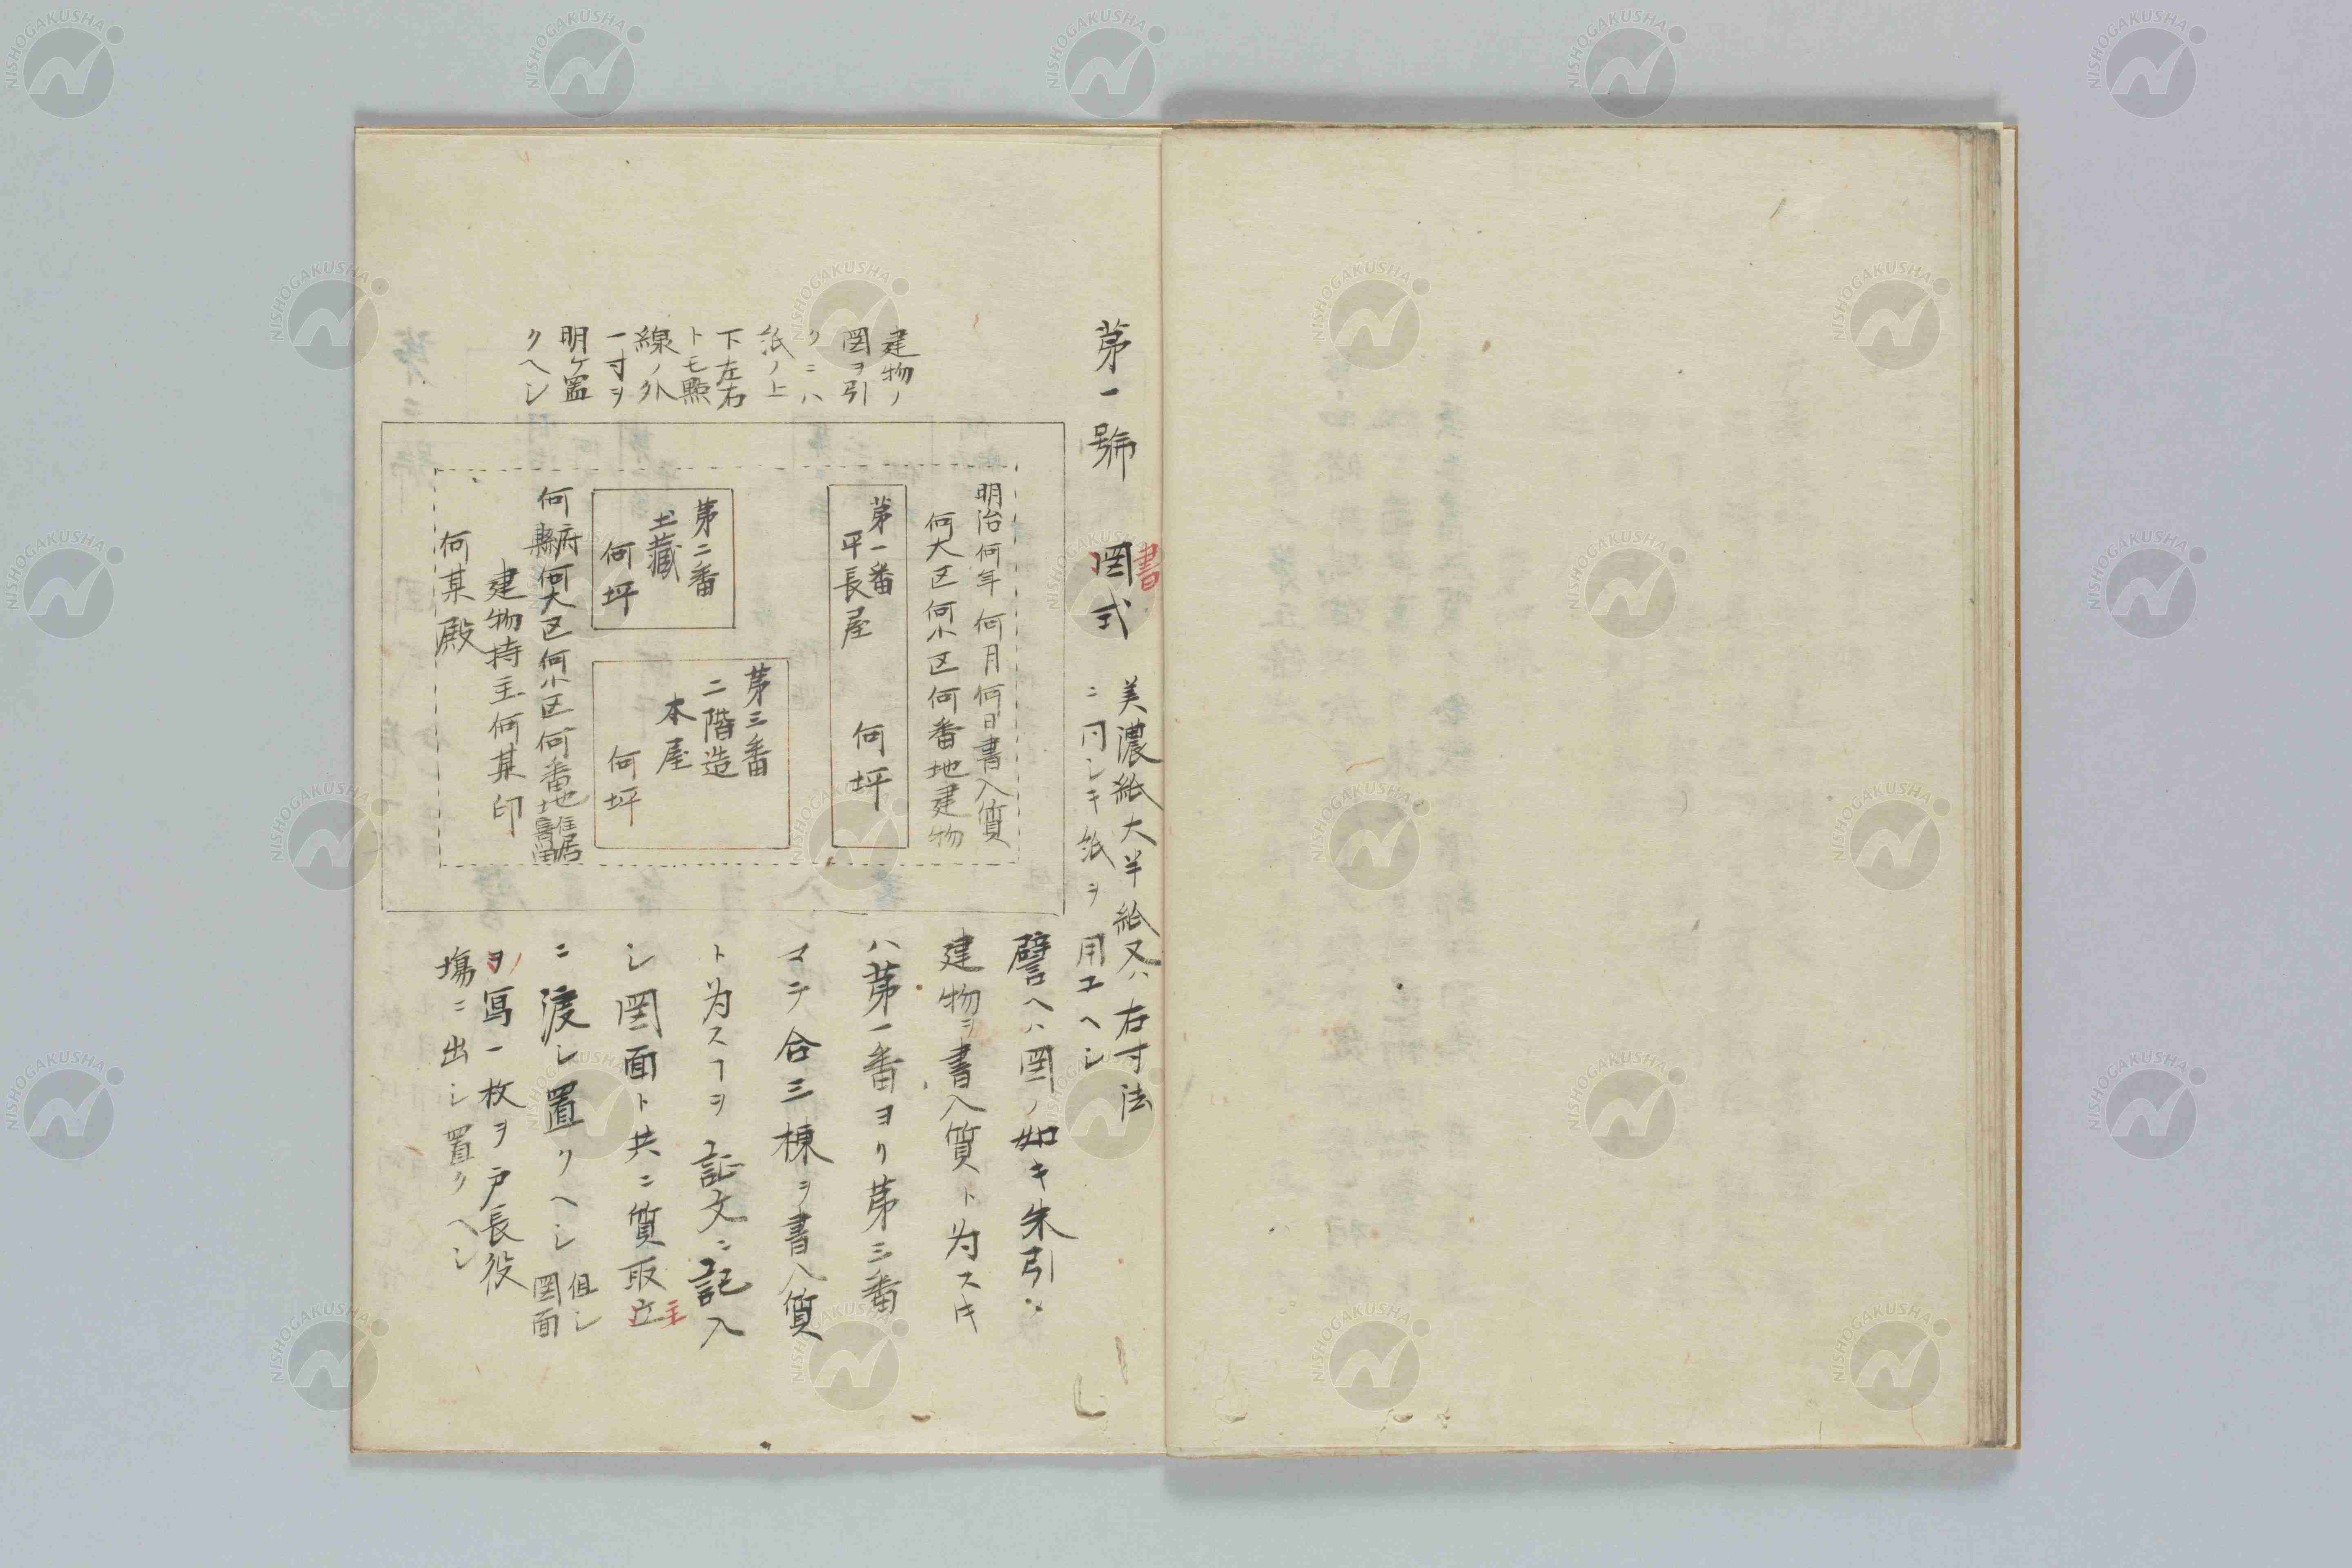 第一號　圖式　美濃紙大半紙又ハ右寸法
ニ同シキ紙ヲ用エヘシ
書
建物ノ
圖ヲ引
クニハ
紙ノ上
下左右
トモ點
線ノ外
一寸ヲ
明ケ置
クヘシ
明治何年何月何日書入質
何大区何小区何番地建物
第一番
平長屋　何坪
第二番
土藏
何坪
第三番
二階造
本屋
何坪
何府縣何大区何小区何番地
建物持主何某印
何某殿
譬ヘハ圖ノ如キ朱引ノ
建物ヲ書入質ト为スキ
ハ第一番ヨリ第三番
マテ合三棟ヲ書入質
ト为スヿヲ証文ニ記入
シ圖面ト共ニ質取立
主
ニ渡シ置クヘシ但シ圖面
ヲ冩一枚ヲ戸長役
塲ニ出シ置クヘシ
NISHOGAKUSHA